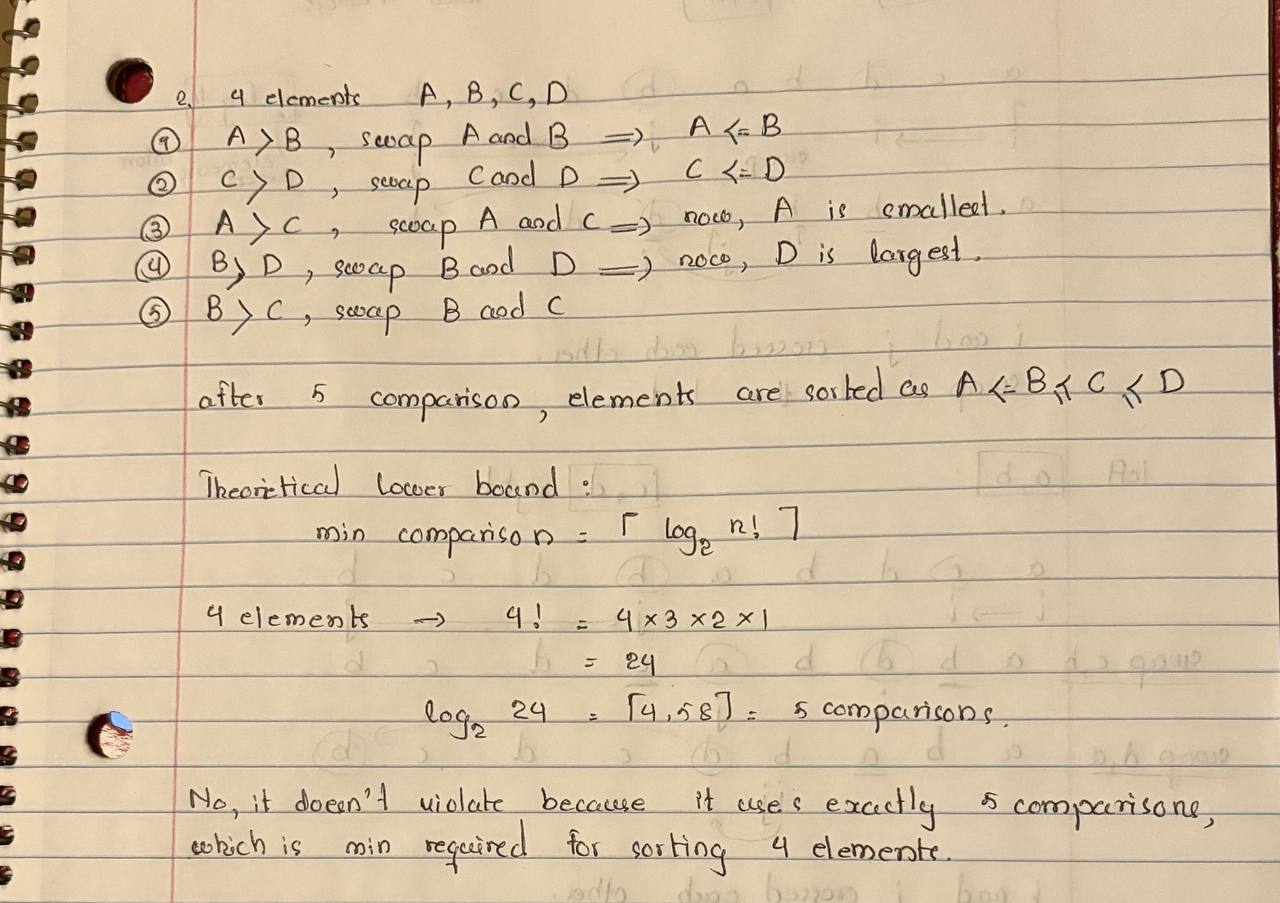 2. 4 elements A, B, C, D
① A > B, swap A and B => A <= B
② C > D, swap C and D => C <= D
③ A > C, swap A and C => now, A is smallest.
④ B > D, swap B and D => now, D is largest.
⑤ B > C, swap B and C
after 5 comparison, elements are sorted as A <= B ≤ C ≤ D
Theoretical lower bound :
min comparison = ⌈ log₂ n! ⌉
4 elements → 4! = 4 × 3 × 2 × 1
= 24
log₂ 24 = ⌈4.58⌉ = 5 comparisons.
No, it doesn't violate because it uses exactly 5 comparisons,
which is min required for sorting 4 elements.